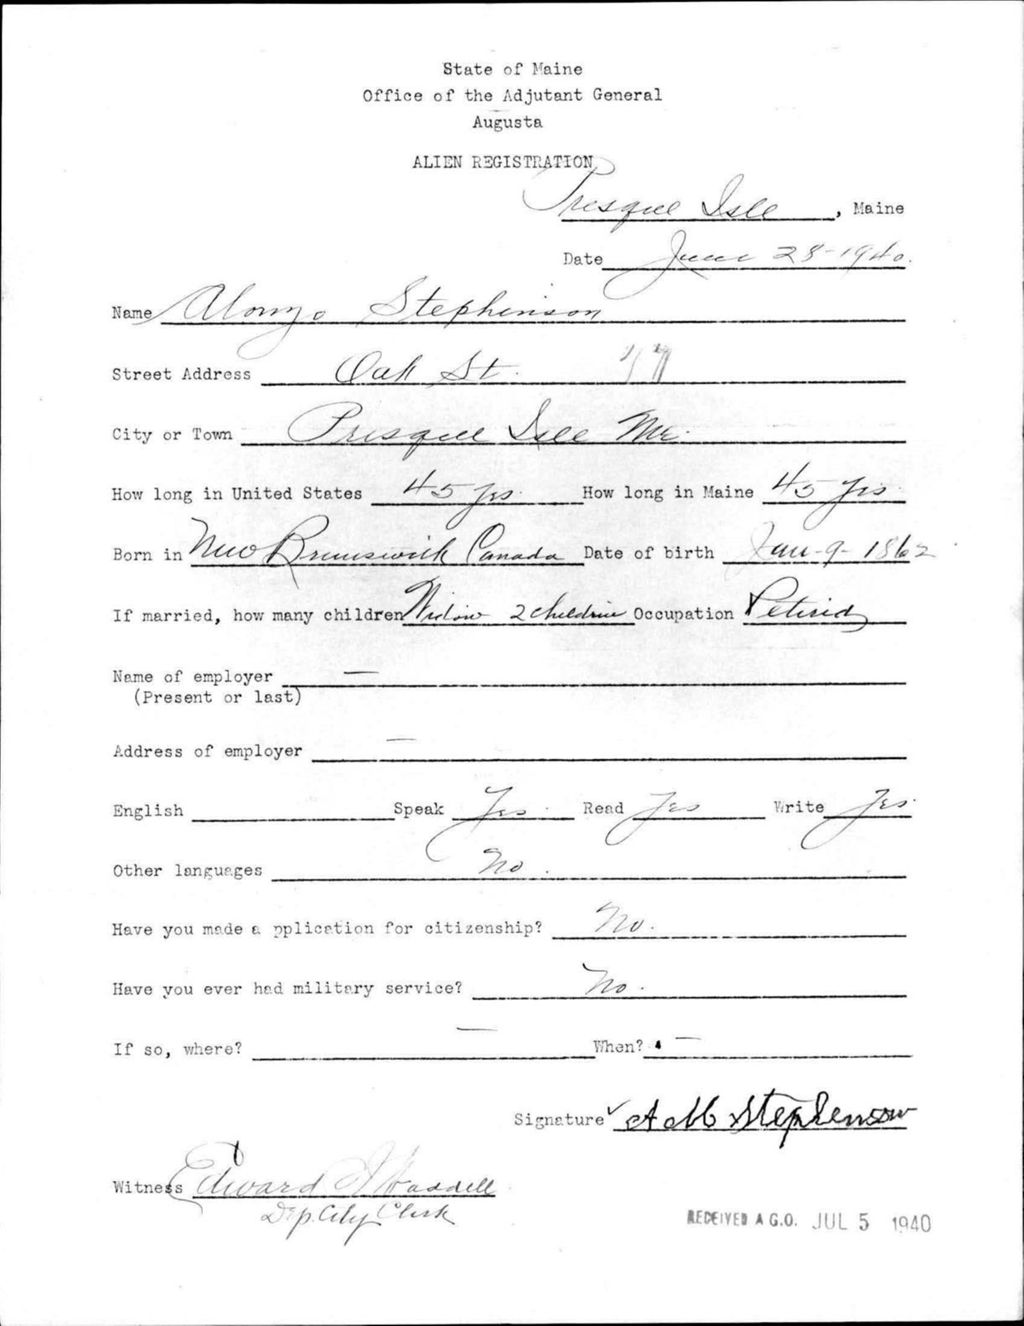 State of Maine
Office of the Adjutant General
Augusta
ALIEN REGISTRATION
Presque Isle, Maine
Date June 28-1940.
Name Alonzo Stephenson
Street Address Oak St.
City or Town Presque Isle Me.
How long in United States 45 yrs. How long in Maine 45 Yrs
Born in New Brunswick Canada Date of birth Jan-9-1862
If married, how many children Widow 2 children Occupation Retired
Name of employer —
(Present or last)
Address of employer —
English Speak Yes. Read Yes Write Yes.
Other languages No.
Have you made a pplication for citizenship? No.
Have you ever had military service? No.
If so, where? — When? —
Signature A M Stephenson
Witness Edward Waddell
Dep. City Clerk
RECEIVED A G.O. JUL 5 1940